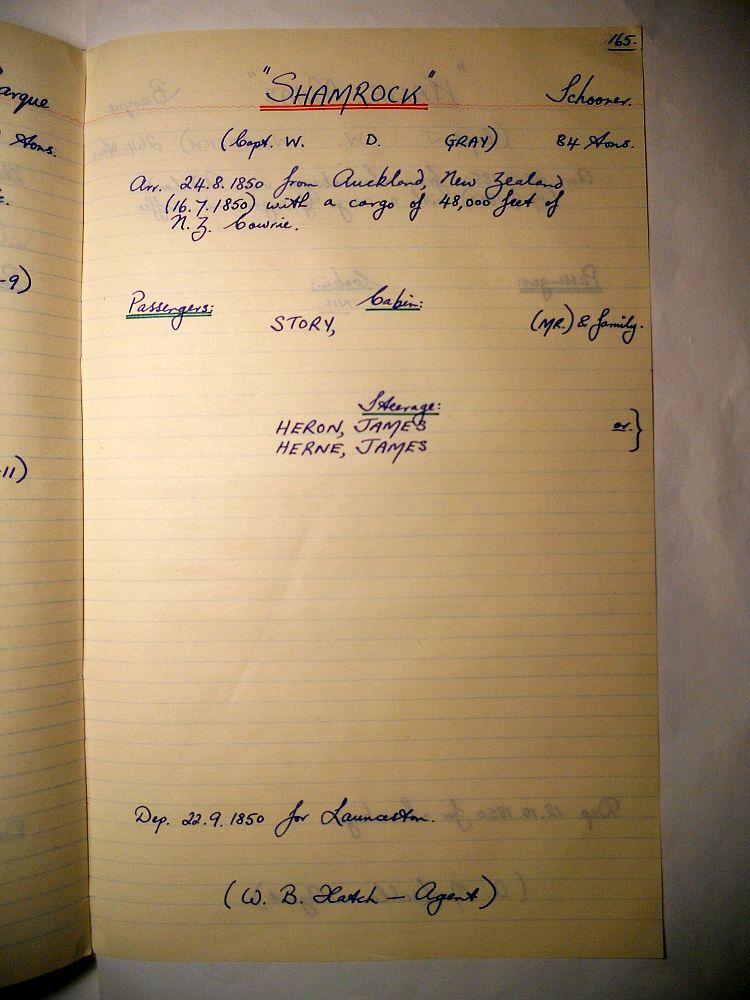 165.
"SHAMROCK" Schooner.
(Capt. W. D. GRAY) 84 Tons.
Arr. 24.8.1850 from Auckland, New Zealand
(16.7.1850) with a cargo of 48,000 feet of
N.Z. Cowrie.
Passengers: Cabin:
STORY, (MR.) & family.
Steerage:
HERON, JAMES or.}
HERNE, JAMES
Dep. 22.9.1850 for Launceston.
(W. B. Hatch — Agent)
arque
Tons.
-9)
-11)